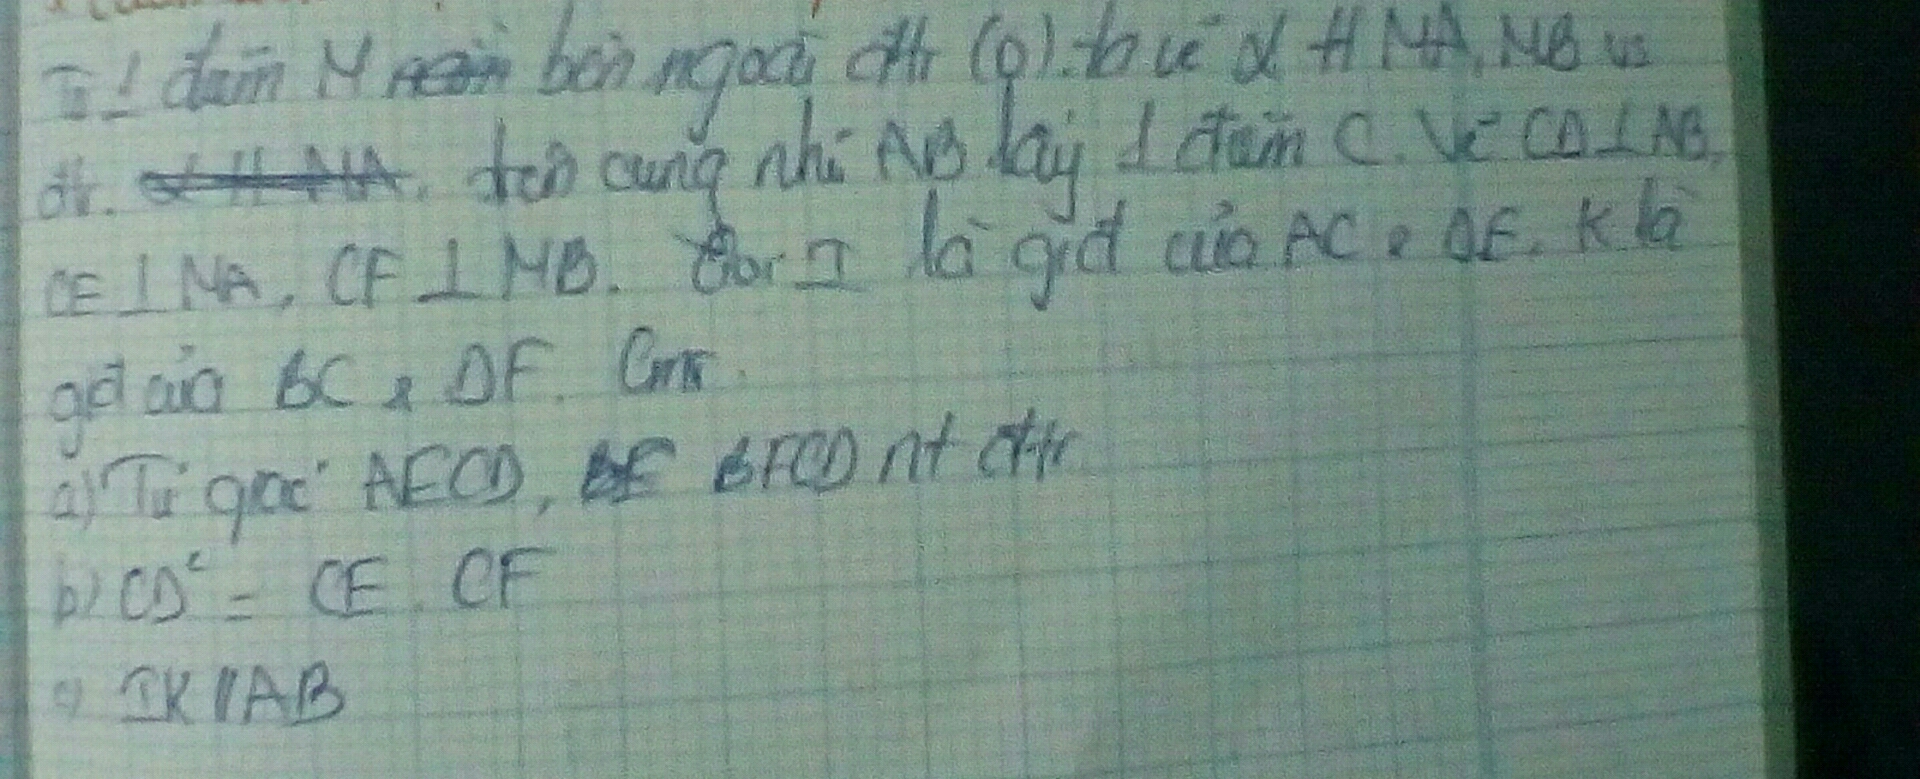 Từ 1 điểm M bên ngoài đtr (O). ta vẽ 2 tt MA, MB vs
đtr. trên cung nhỏ AB lấy 1 điểm C. Vẽ CD⊥AB,
CE⊥MA, CF⊥MB. Gọi I là gđ của AC & DE. K là
gđ của BC & DF. Cmr
a) Tứ giác AECD, BFCD nt đtr
b) CD² = CE . CF
c) IK // AB